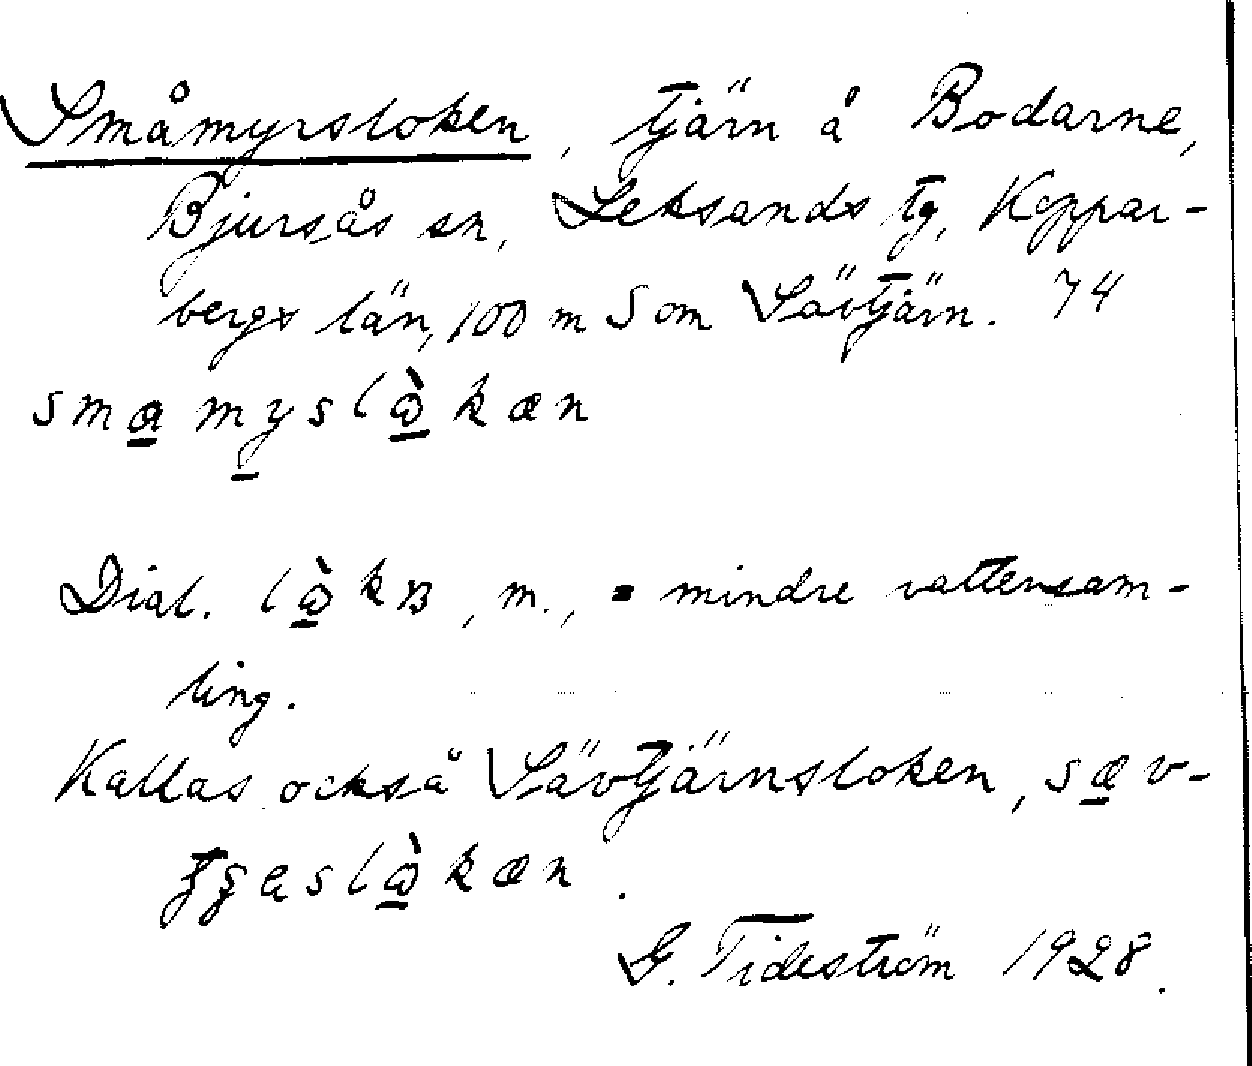 Småmyrsloken, tjärn å Bodarne,
Bjursås sn, Leksands tg, Koppar-
bergs län, 100 m S om Sävtjärn. 74
smamyslὼkæn
Dial. lὼkɞ, m., = mindre vattensam-
ling.
Kallas också Sävtjärnsloken, sæv-
slὼkæn.
G. Tideström 1928.